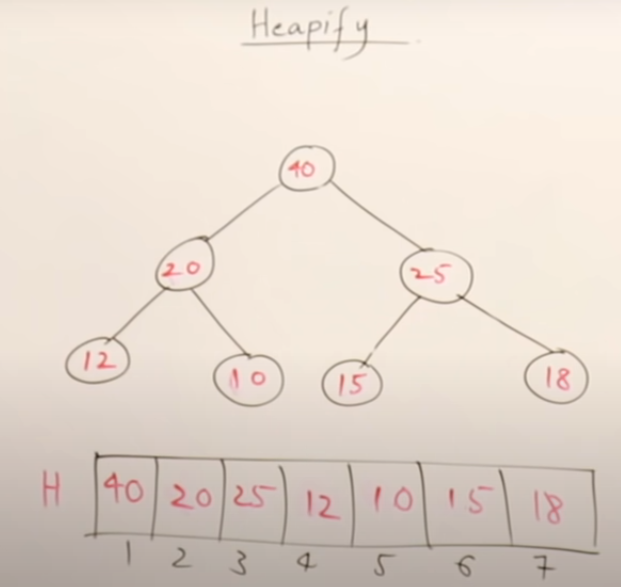 Heapify
40
20 25
12 10 15 18
H 40 20 25 12 10 15 18
1 2 3 4 5 6 7